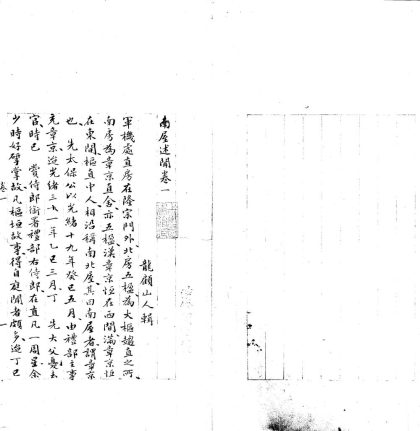 南屋述聞卷一
龍顧山人輯
軍機處直房在隆宗門外北房五楹為大樞趨直之所
南房為章京直舍亦五楹漢章京恒在西間滿章京恒
在東間樞直中人相沿稱南北屋其曰南屋者謂章京
也 先太保公以光緒十九年癸巳五月由禮部主事
充章京迄光緒三十一年乙巳三月丁 先大父憂去
官時已 賞侍郎銜署禮部右侍郎在直凡一周星余
少時好掌故凡樞垣故事得自庭聞者頗多迄丁巳
卷一